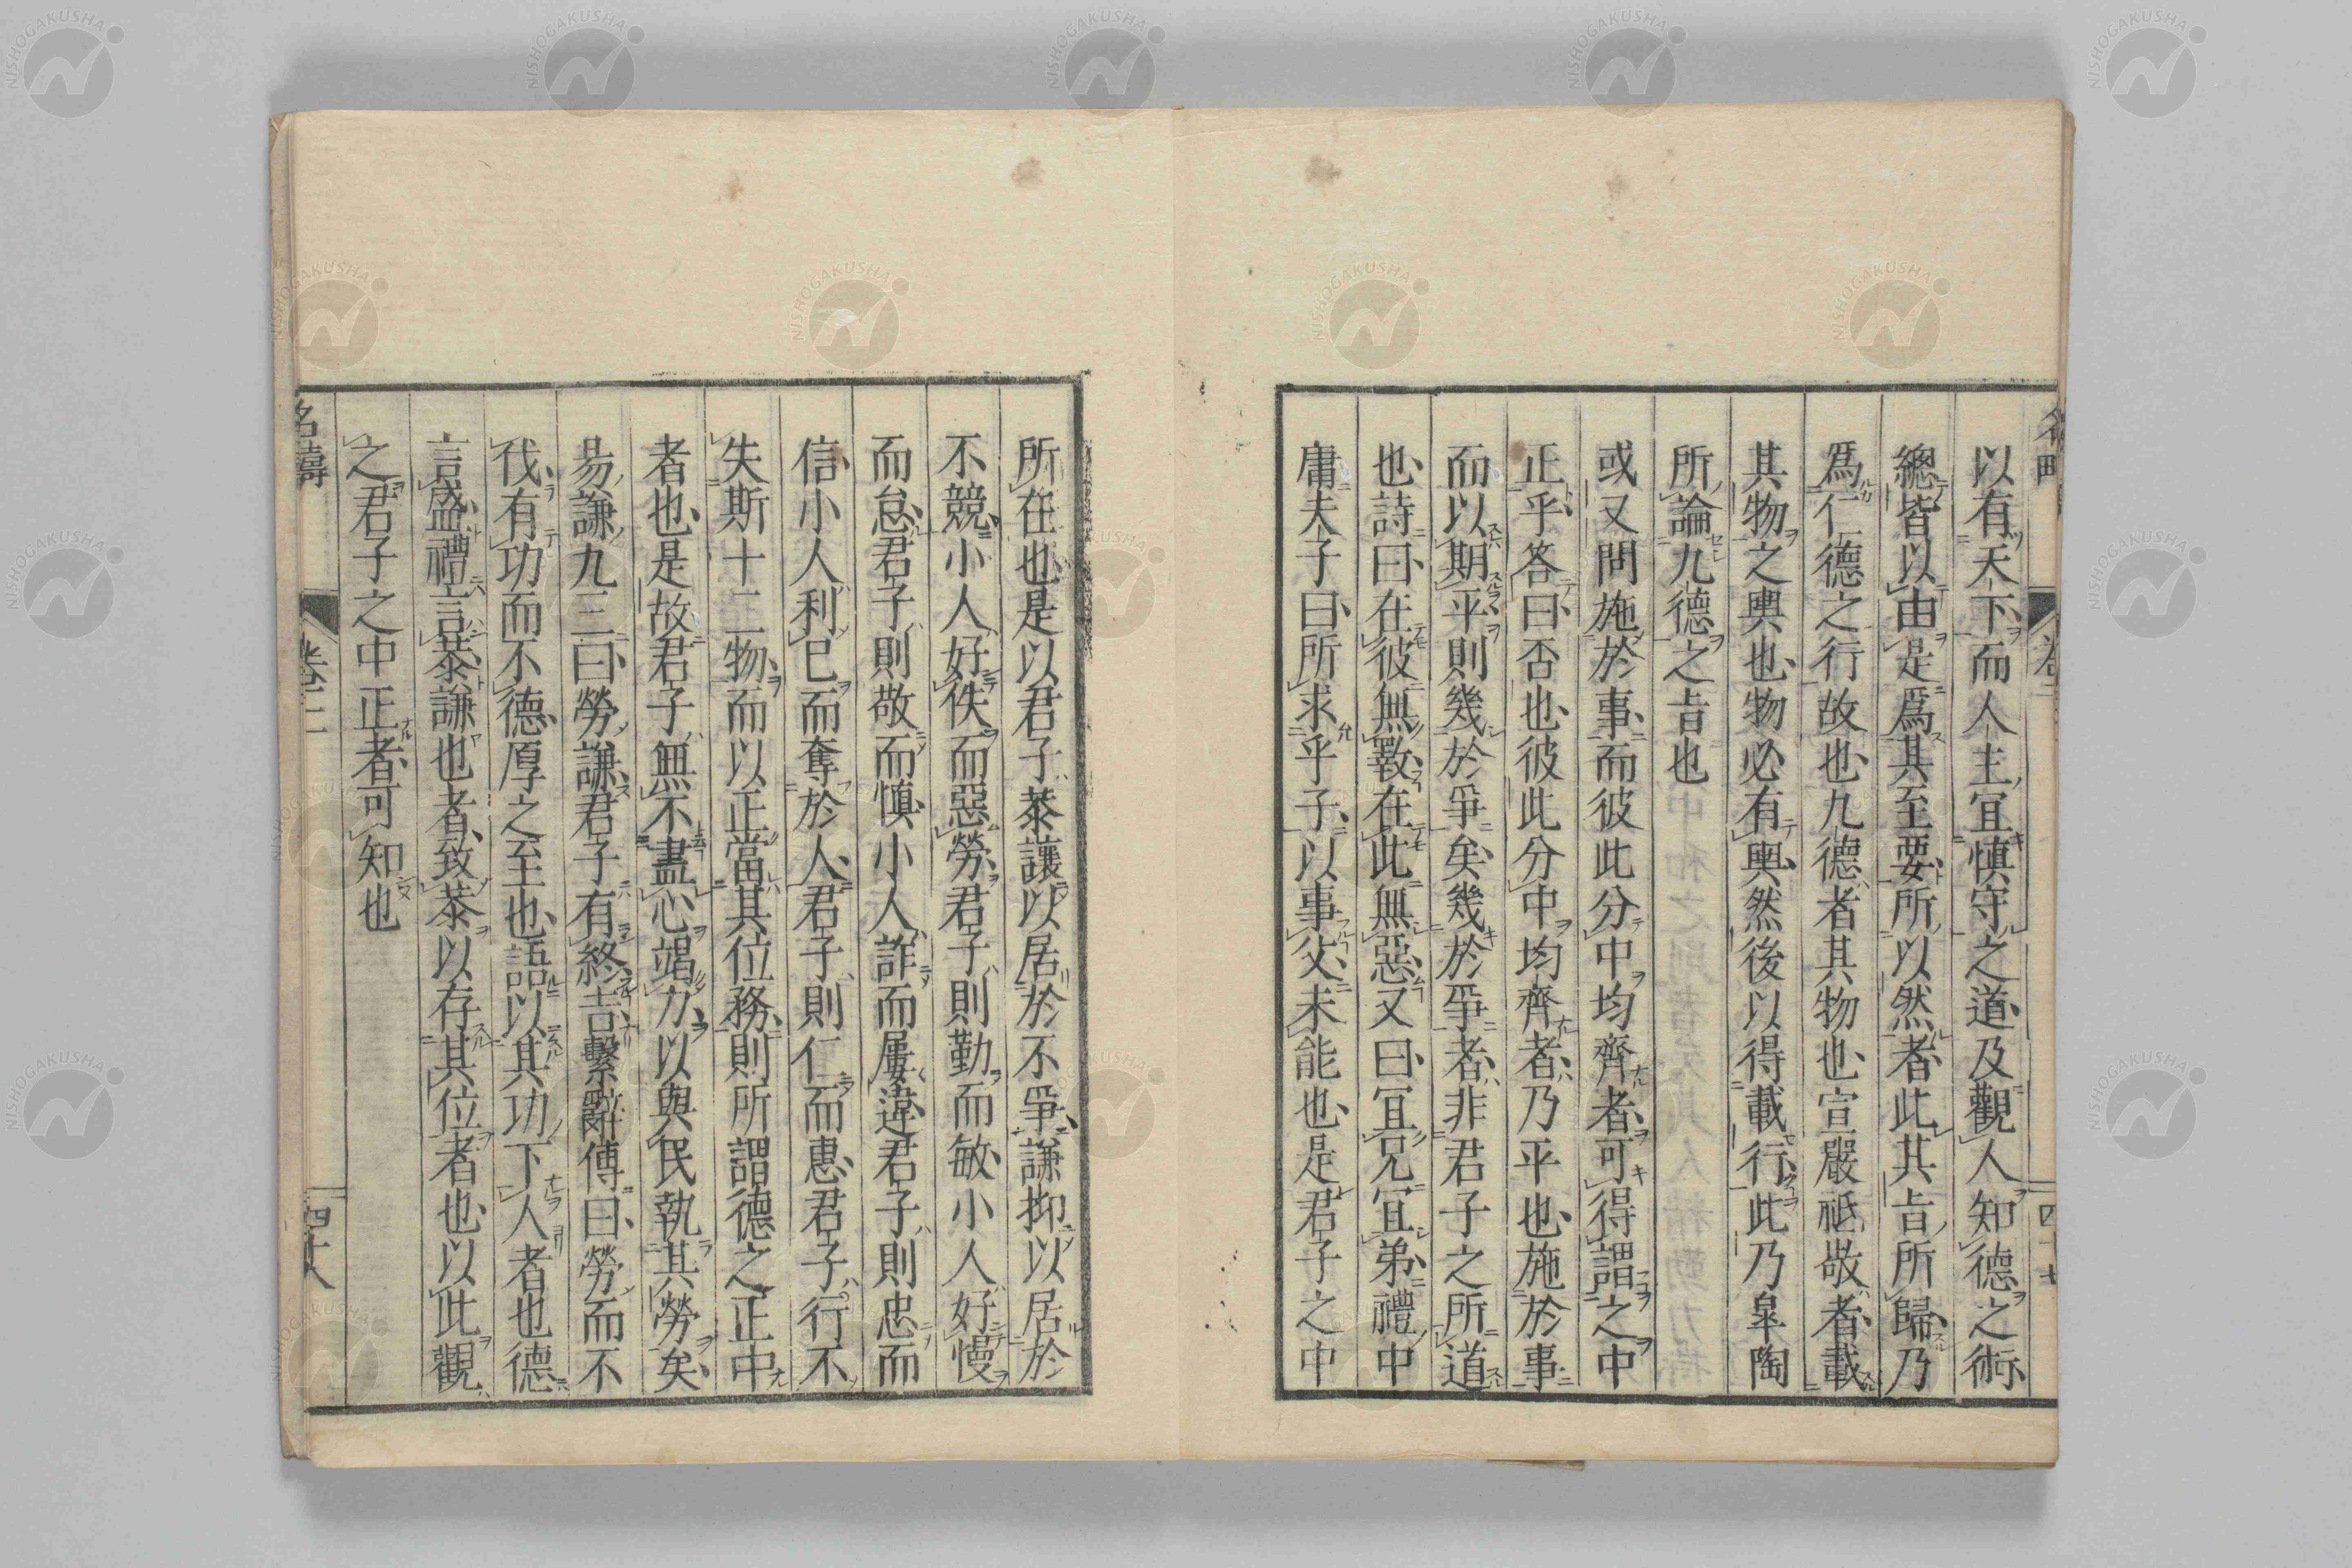 以有天下而人主宜慎守之道及觀人知德之術
總皆以由是爲其至要所以然者此其旨所歸乃
爲仁德之行故也九德者其物也宣嚴祗敬者載
其物之輿也物必有輿然後以得載行此乃皐陶
所論九德之旨也
或又問施於事而彼此分中均齊者可得謂之中
正乎答曰否也彼此分中均齊者乃平也施於事
而以期平則幾於爭矣幾於爭者非君子之所道
也詩曰在彼無斁在此無惡又曰宜兄宜弟禮中
庸夫子曰所求乎子以事父未能也是君子之中
所在也是以君子恭讓以居於不爭謙抑以居於
不競小人好佚而惡勞君子則勤而敏小人好慢
而怠君子則敬而慎小人詐而屢違君子則忠而
信小人利己而奪於人君子則仁而惠君子行不
失斯十二物而以正當其位務則所謂德之正中
者也是故君子無不盡心竭力以與民執其勞矣
易謙九三曰勞謙君子有終吉繫辭傳曰勞而不
伐有功而不德厚之至也語以其功下人者也德
言盛禮言恭謙也者致恭以存其位者也以此觀
之君子之中正者可知也
名疇
卷三
四十八
NISHOGAKUSHA